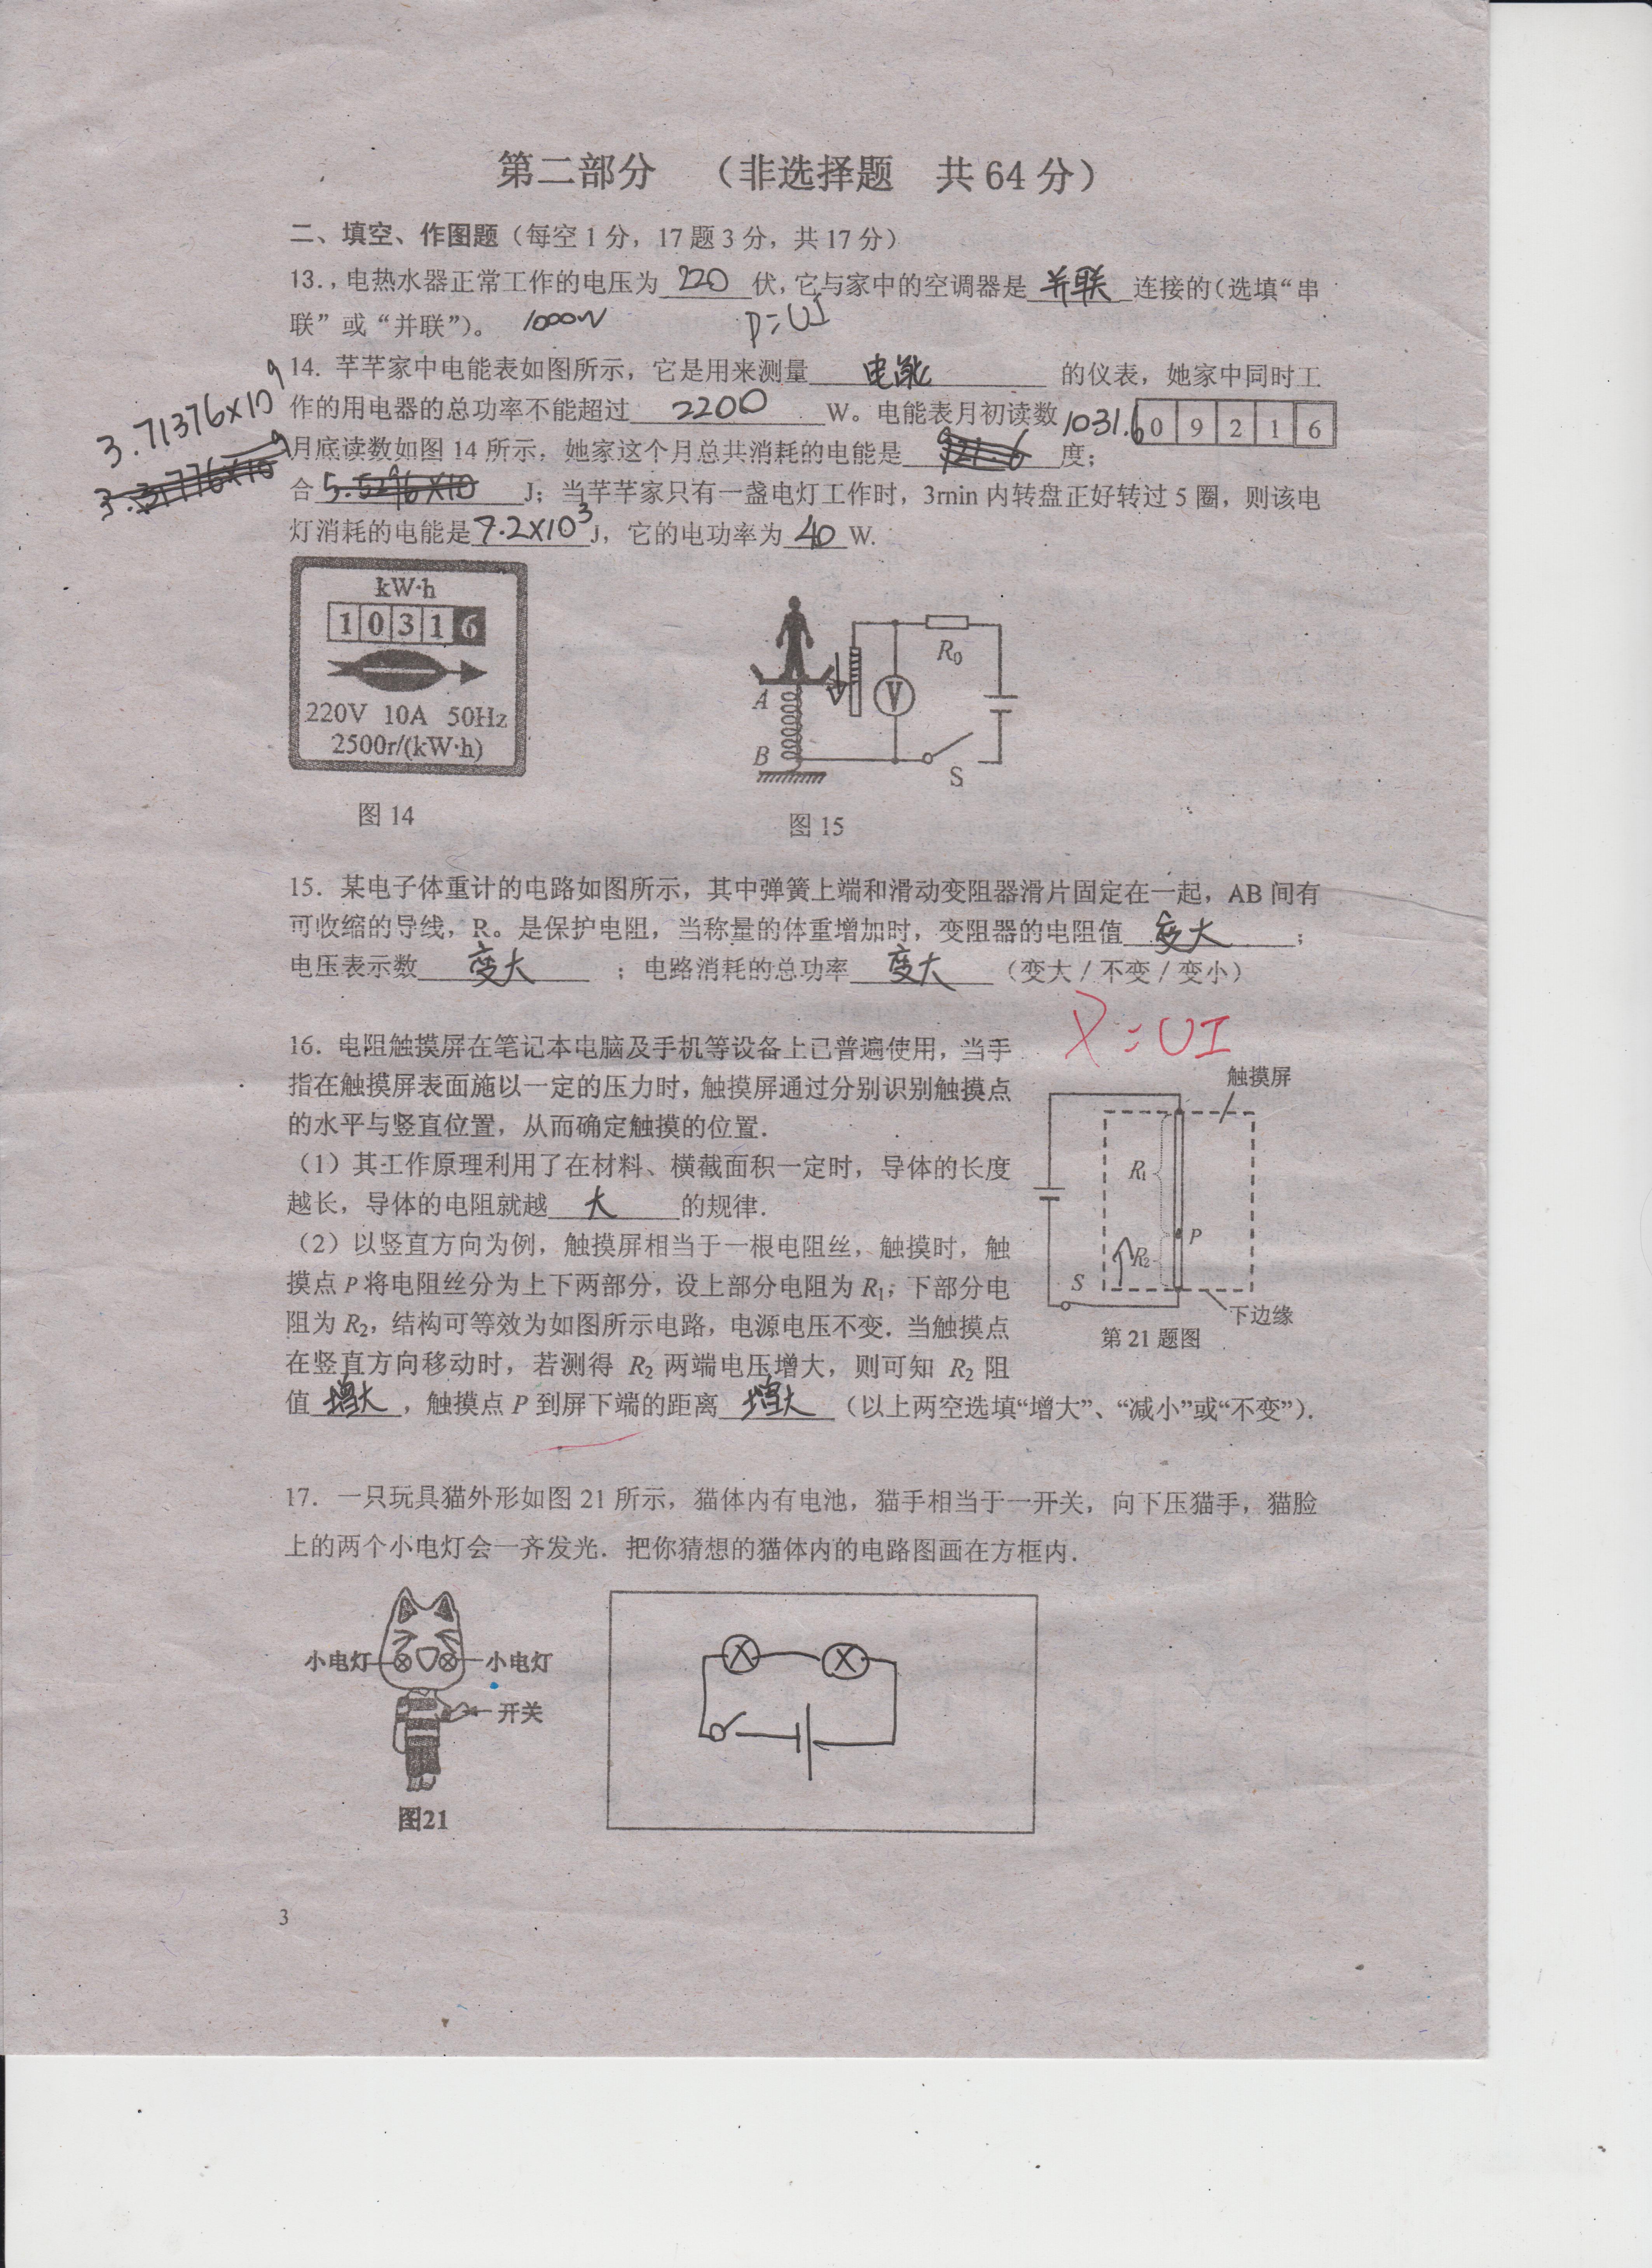 第二部分 （非选择题 共 64 分）
二、填空、作图题（每空 1 分，17 题 3 分，共 17 分）
13.，电热水器正常工作的电压为 220 伏，它与家中的空调器是 并联 连接的（选填“串
联”或“并联”）。 1000W P=UI
14. 芊芊家中电能表如图所示，它是用来测量 电能 的仪表，她家中同时工
作的用电器的总功率不能超过 2200 W。电能表月初读数 0 9 2 1 6
1031.6
3.71376×10⁹
月底读数如图 14 所示，她家这个月总共消耗的电能是 921.6 度；
合 5.5296×10 J；当芊芊家只有一盏电灯工作时，3min 内转盘正好转过 5 圈，则该电
灯消耗的电能是 7.2×10³ J，它的电功率为 40 W.
kW·h
1 0 3 1 6
220V 10A 50Hz
2500r/(kW·h)
图 14
A
B
V
R₀
S
图 15
15. 某电子体重计的电路如图所示，其中弹簧上端和滑动变阻器滑片固定在一起，AB 间有
可收缩的导线，R。是保护电阻，当称量的体重增加时，变阻器的电阻值 变大 ；
电压表示数 变大 ；电路消耗的总功率 变大 （变大 / 不变 / 变小）
P=UI
16. 电阻触摸屏在笔记本电脑及手机等设备上已普遍使用，当手
指在触摸屏表面施以一定的压力时，触摸屏通过分别识别触摸点
的水平与竖直位置，从而确定触摸的位置.
（1）其工作原理利用了在材料、横截面积一定时，导体的长度
越长，导体的电阻就越 大 的规律.
（2）以竖直方向为例，触摸屏相当于一根电阻丝，触摸时，触
摸点 P 将电阻丝分为上下两部分，设上部分电阻为 R₁；下部分电
阻为 R₂，结构可等效为如图所示电路，电源电压不变. 当触摸点
在竖直方向移动时，若测得 R₂ 两端电压增大，则可知 R₂ 阻
值 增大 ，触摸点 P 到屏下端的距离 增大 （以上两空选填“增大”、“减小”或“不变”）.
触摸屏
R₁
P
R₂
S
下边缘
第 21 题图
17. 一只玩具猫外形如图 21 所示，猫体内有电池，猫手相当于一开关，向下压猫手，猫脸
上的两个小电灯会一齐发光. 把你猜想的猫体内的电路图画在方框内.
小电灯 小电灯
开关
图21
3